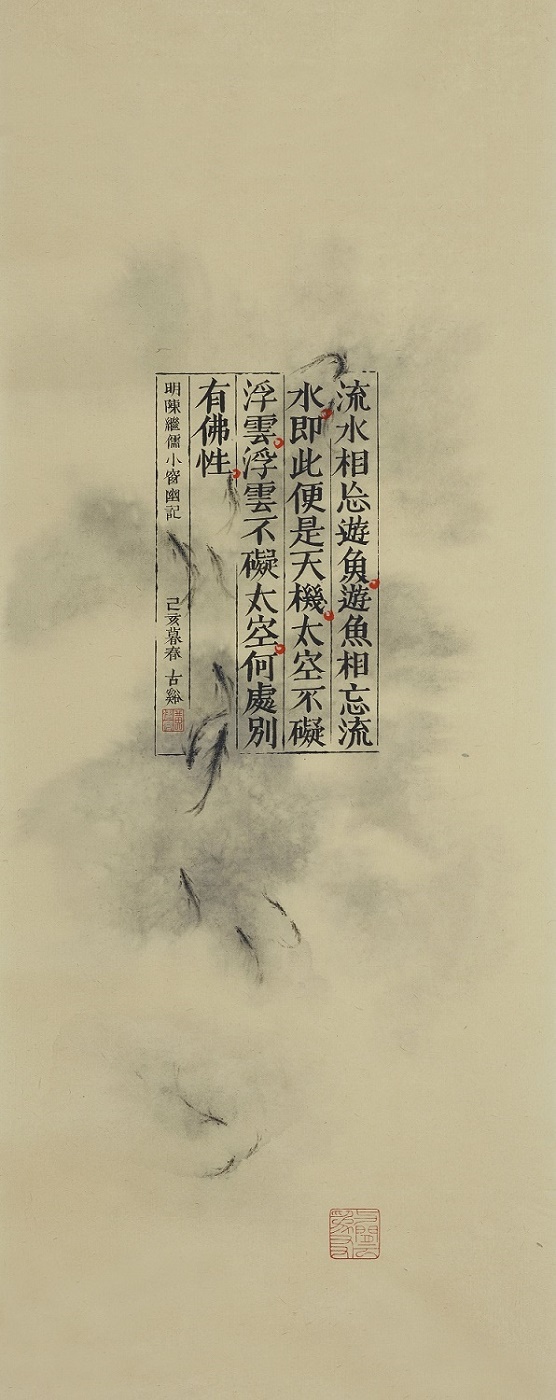 流水相忘遊魚遊魚相忘流
水即此便是天機太空不礙
浮雲浮雲不礙太空何處別
有佛性
明陳繼儒小窗幽記 己亥暮春 古谿